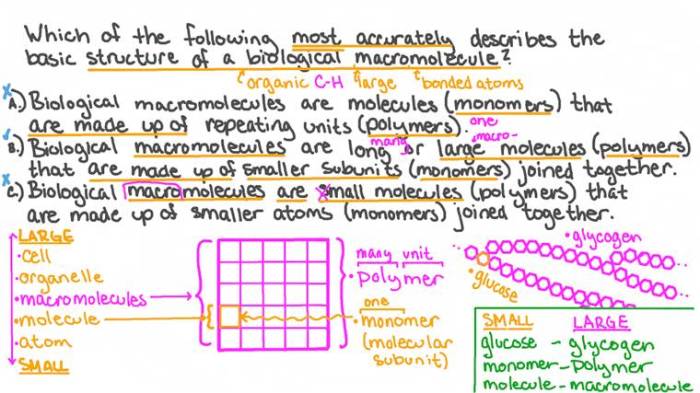 Which of the following most accurately describes the
basic structure of a biological macromolecule?
organic C-H large bonded atoms
A.) Biological macromolecules are molecules (monomers) that
are made up of repeating units (polymers).
one
macro-
many
B.) Biological macromolecules are long or large molecules (polymers)
that are made up of smaller subunits (monomers) joined together.
C.) Biological macromolecules are small molecules (polymers) that
are made up of smaller atoms (monomers) joined together.
LARGE
•cell
•organelle
•macromolecules
•molecule
•atom
SMALL
many unit
•polymer
one
•monomer
(molecular
subunit)
•glycogen
•glucose
SMALL LARGE
glucose - glycogen
monomer - polymer
molecule - macromolecule